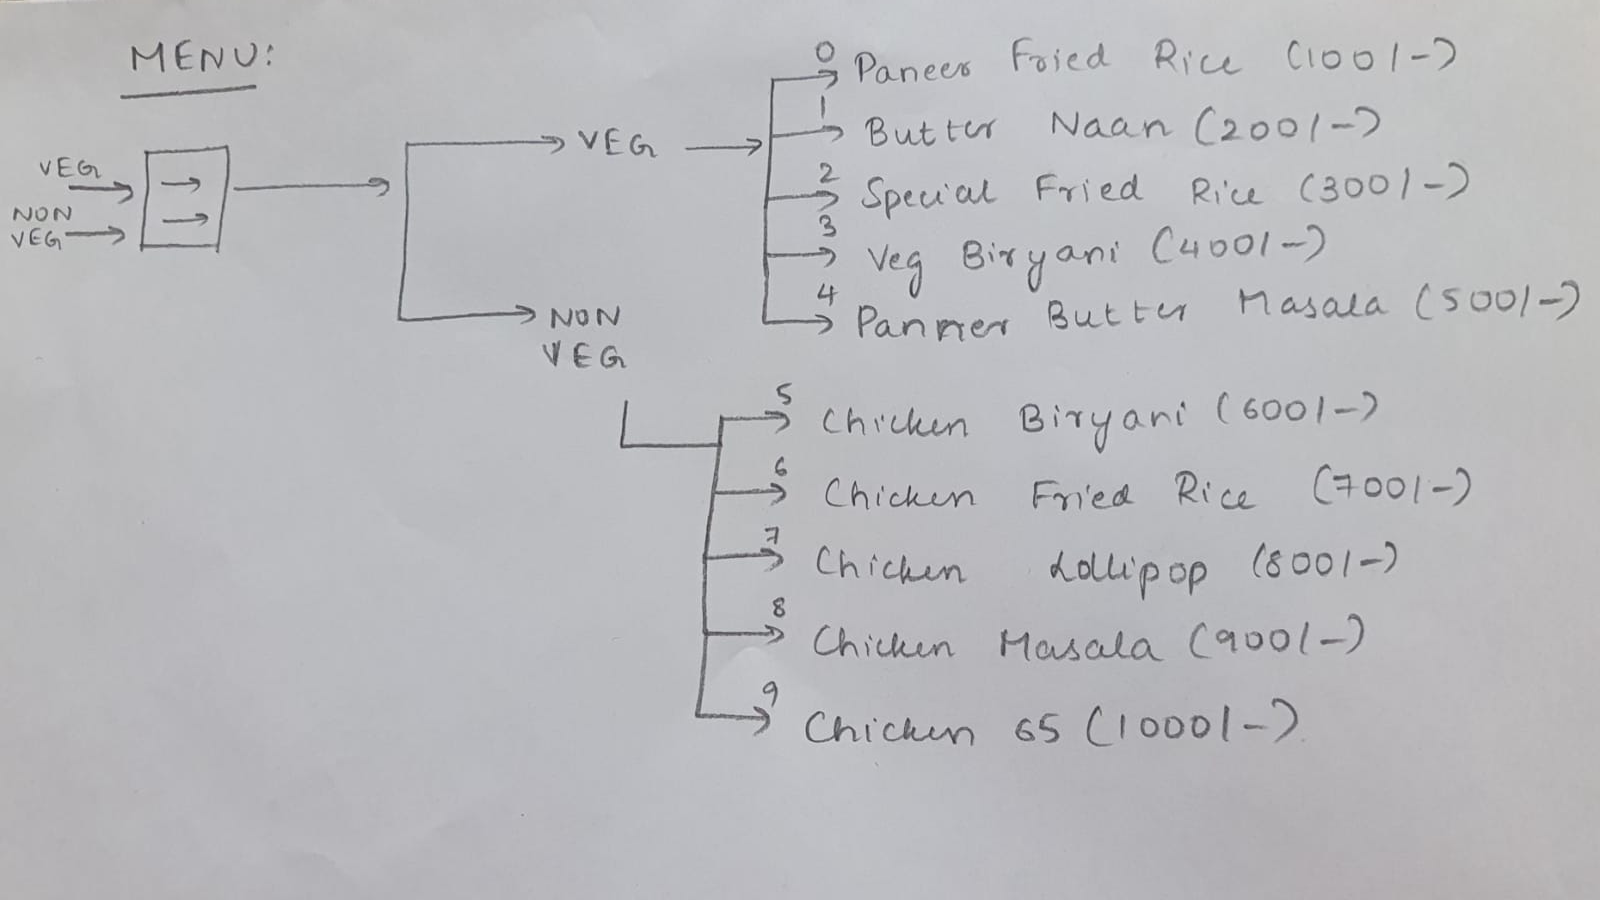 MENU:
VEG
NON
VEG
VEG
NON
VEG
0
Paneer Fried Rice (100/-)
1
Butter Naan (200/-)
2
Special Fried Rice (300/-)
3
Veg Biryani (400/-)
4
Panner Butter Masala (500/-)
5
Chicken Biryani (600/-)
6
Chicken Fried Rice (700/-)
7
Chicken Lollipop (800/-)
8
Chicken Masala (900/-)
9
Chicken 65 (1000/-)